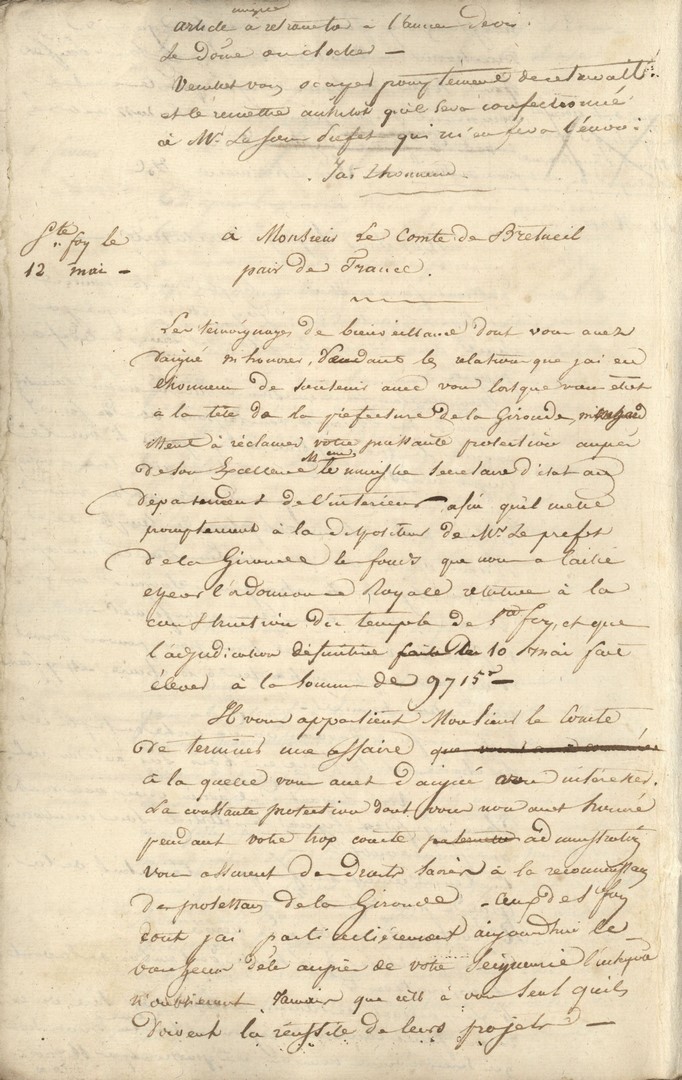 article à retrancher à l'ancien devis.
Le Dôme ou clocher —
Veuillez vous occuper promptement de ce travail
et le remettre aussitot qu'il sera confectionné
à Mr. Le sous Prefet qui m'en fera l'envoi.
J'ai L'honneur
Ste foy le
12 mai —
à Monsieur Le Comte de Breteuil
pair de France.
Les témoignages de bienveillance dont vous avez
daigné m'honorer, pendant les relations que j'ai eu
l'honneur de soutenir avec vous lorsque vous étiez
à la tête de la préfecture de la Gironde,
à réclamer votre puissante protection auprès
de son Excellence le ministre secretaire d'état au
département de l'interieur, afin qu'il mette
promptement à la disposition de Mr. Le prefet
de la Gironde les fonds que nous a
l'ordonnance Royale relative à la
construction du temple de Ste foy, et que
l'adjudication définitive faite le 10 mai fait
élever à la somme de 9715f —
Il vous appartient Monsieur le Comte
de terminer une affaire
à la quelle vous avez daigné vous intéresser.
La constante protection dont vous nous avez honoré
pendant votre trop courte administration
vous assurent des droits sacrés à la reconnaissance
des protestans de la Gironde. Ceux de Ste foy
dont j'ai particulièrement aujourd'hui le
d'être auprès de votre Seigneurie l'interprète
n'oublieront jamais que c'est à vous seul qu'ils
doivent la réussite de leurs projets —